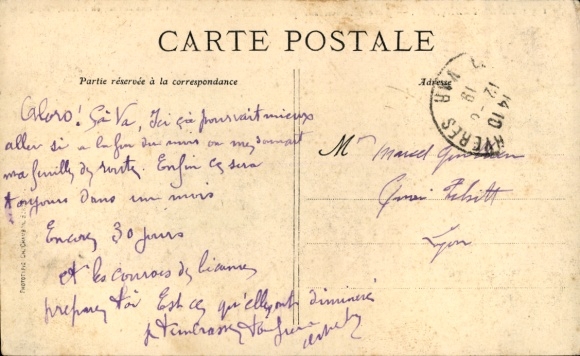 CARTE POSTALE
Partie réservée à la correspondance
Adresse
Alors! Ça Va, Ici ça pourrait mieux
aller si a la fin du mois on me donnait
ma feuille de route. Enfin ce sera
toujours dans un mois
Encore 30 jours
et les courses de
prepare toi Est ce qu'elles ont diminué
Mr Marcel
Quai Tilsitt
Lyon
HYERES
VAR
PHOTOTYPIE